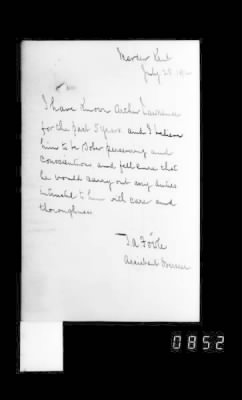 July 28
I have known Arthur Lawrence
for the past 5 years and I believe
him to be sober persevering and
conscientious and feel sure that
he would carry out any duties
intrusted to him with care and
thoroughness
0852